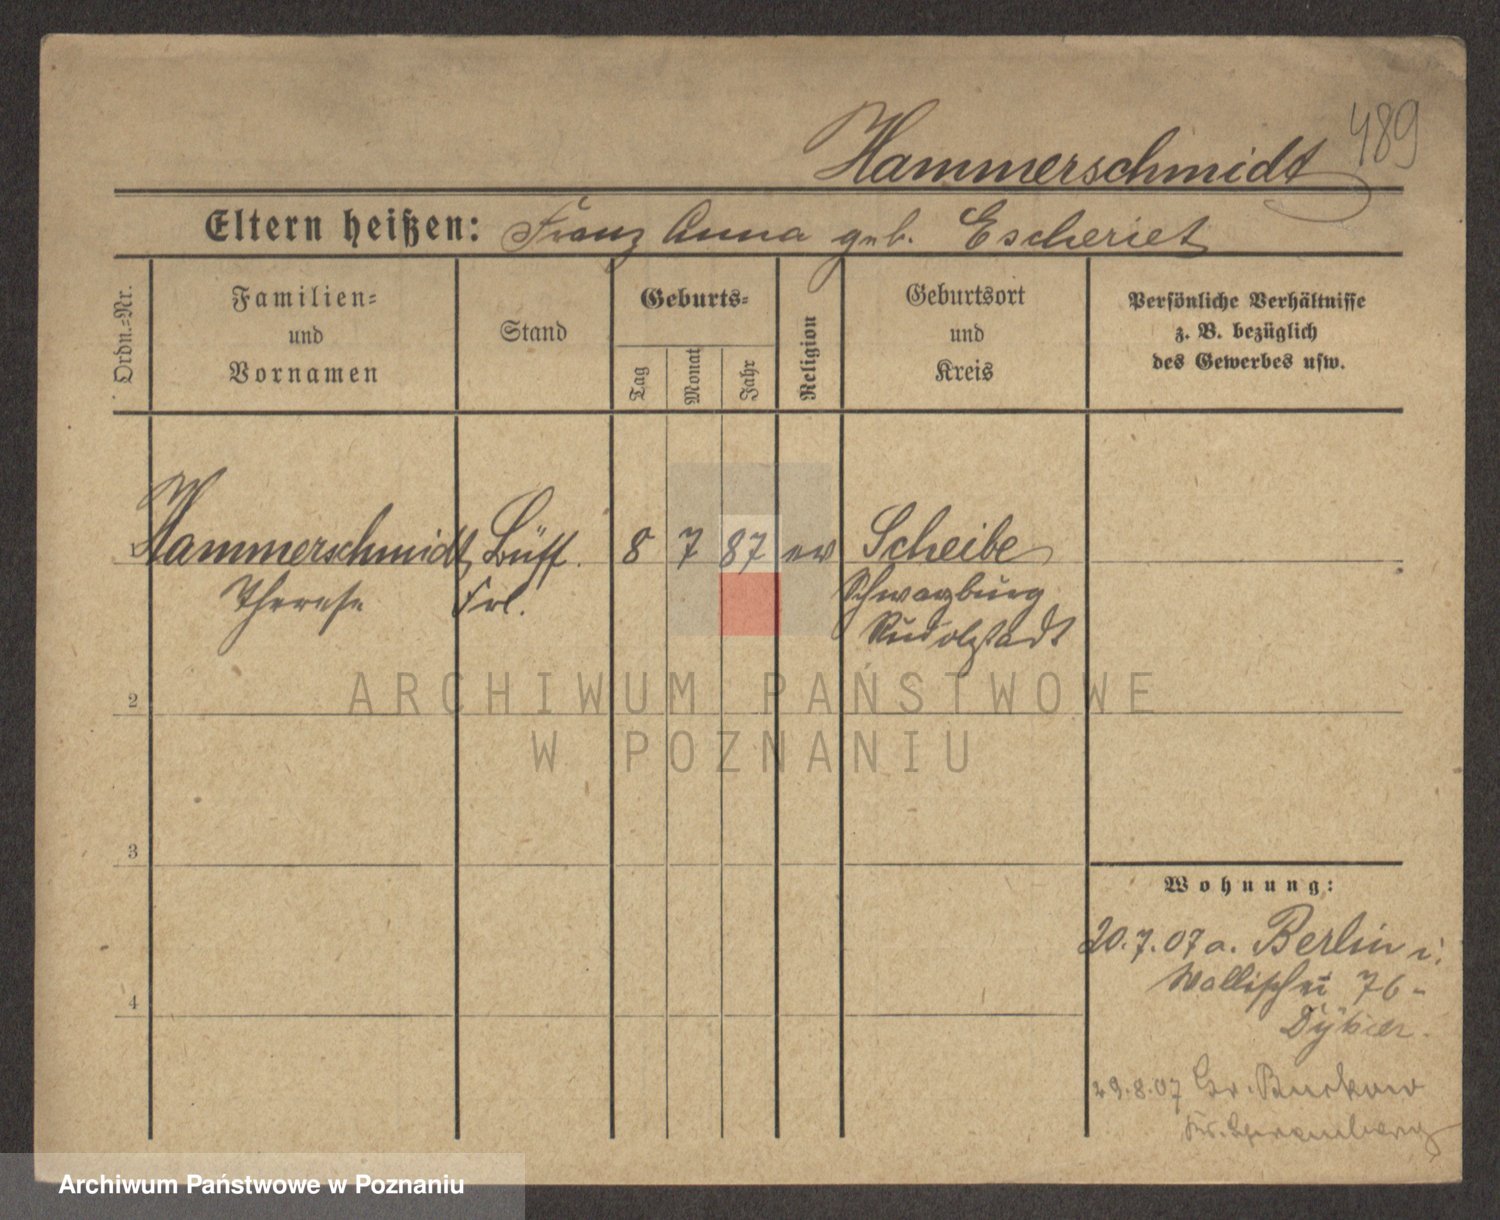 489
Hammerschmidt
Eltern heißen: Franz Anna geb. Escheriet
Ordn.-Nr.
Familien-
und
Vornamen
Stand
Geburts-
Tag
Monat
Jahr
Religion
Geburtsort
und
Kreis
Persönliche Verhältnisse
z. B. bezüglich
des Gewerbes usw.
Hammerschmidt Büff. 8 7 87 ev Scheibe
Therese Frl. Schwarzburg
Rudolstadt
2
3
4
Wohnung:
20.7.07 a. Berlin i.
Wallischei 76-
29.8.07 Gr. Buckow
Kr. Spremberg
ARCHIWUM PAŃSTWOWE
W POZNANIU
Archiwum Państwowe w Poznaniu